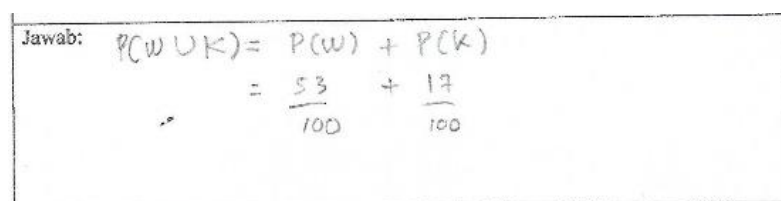 Jawab: P(W ∪ K) = P(W) + P(K)
= 53/100 + 17/100